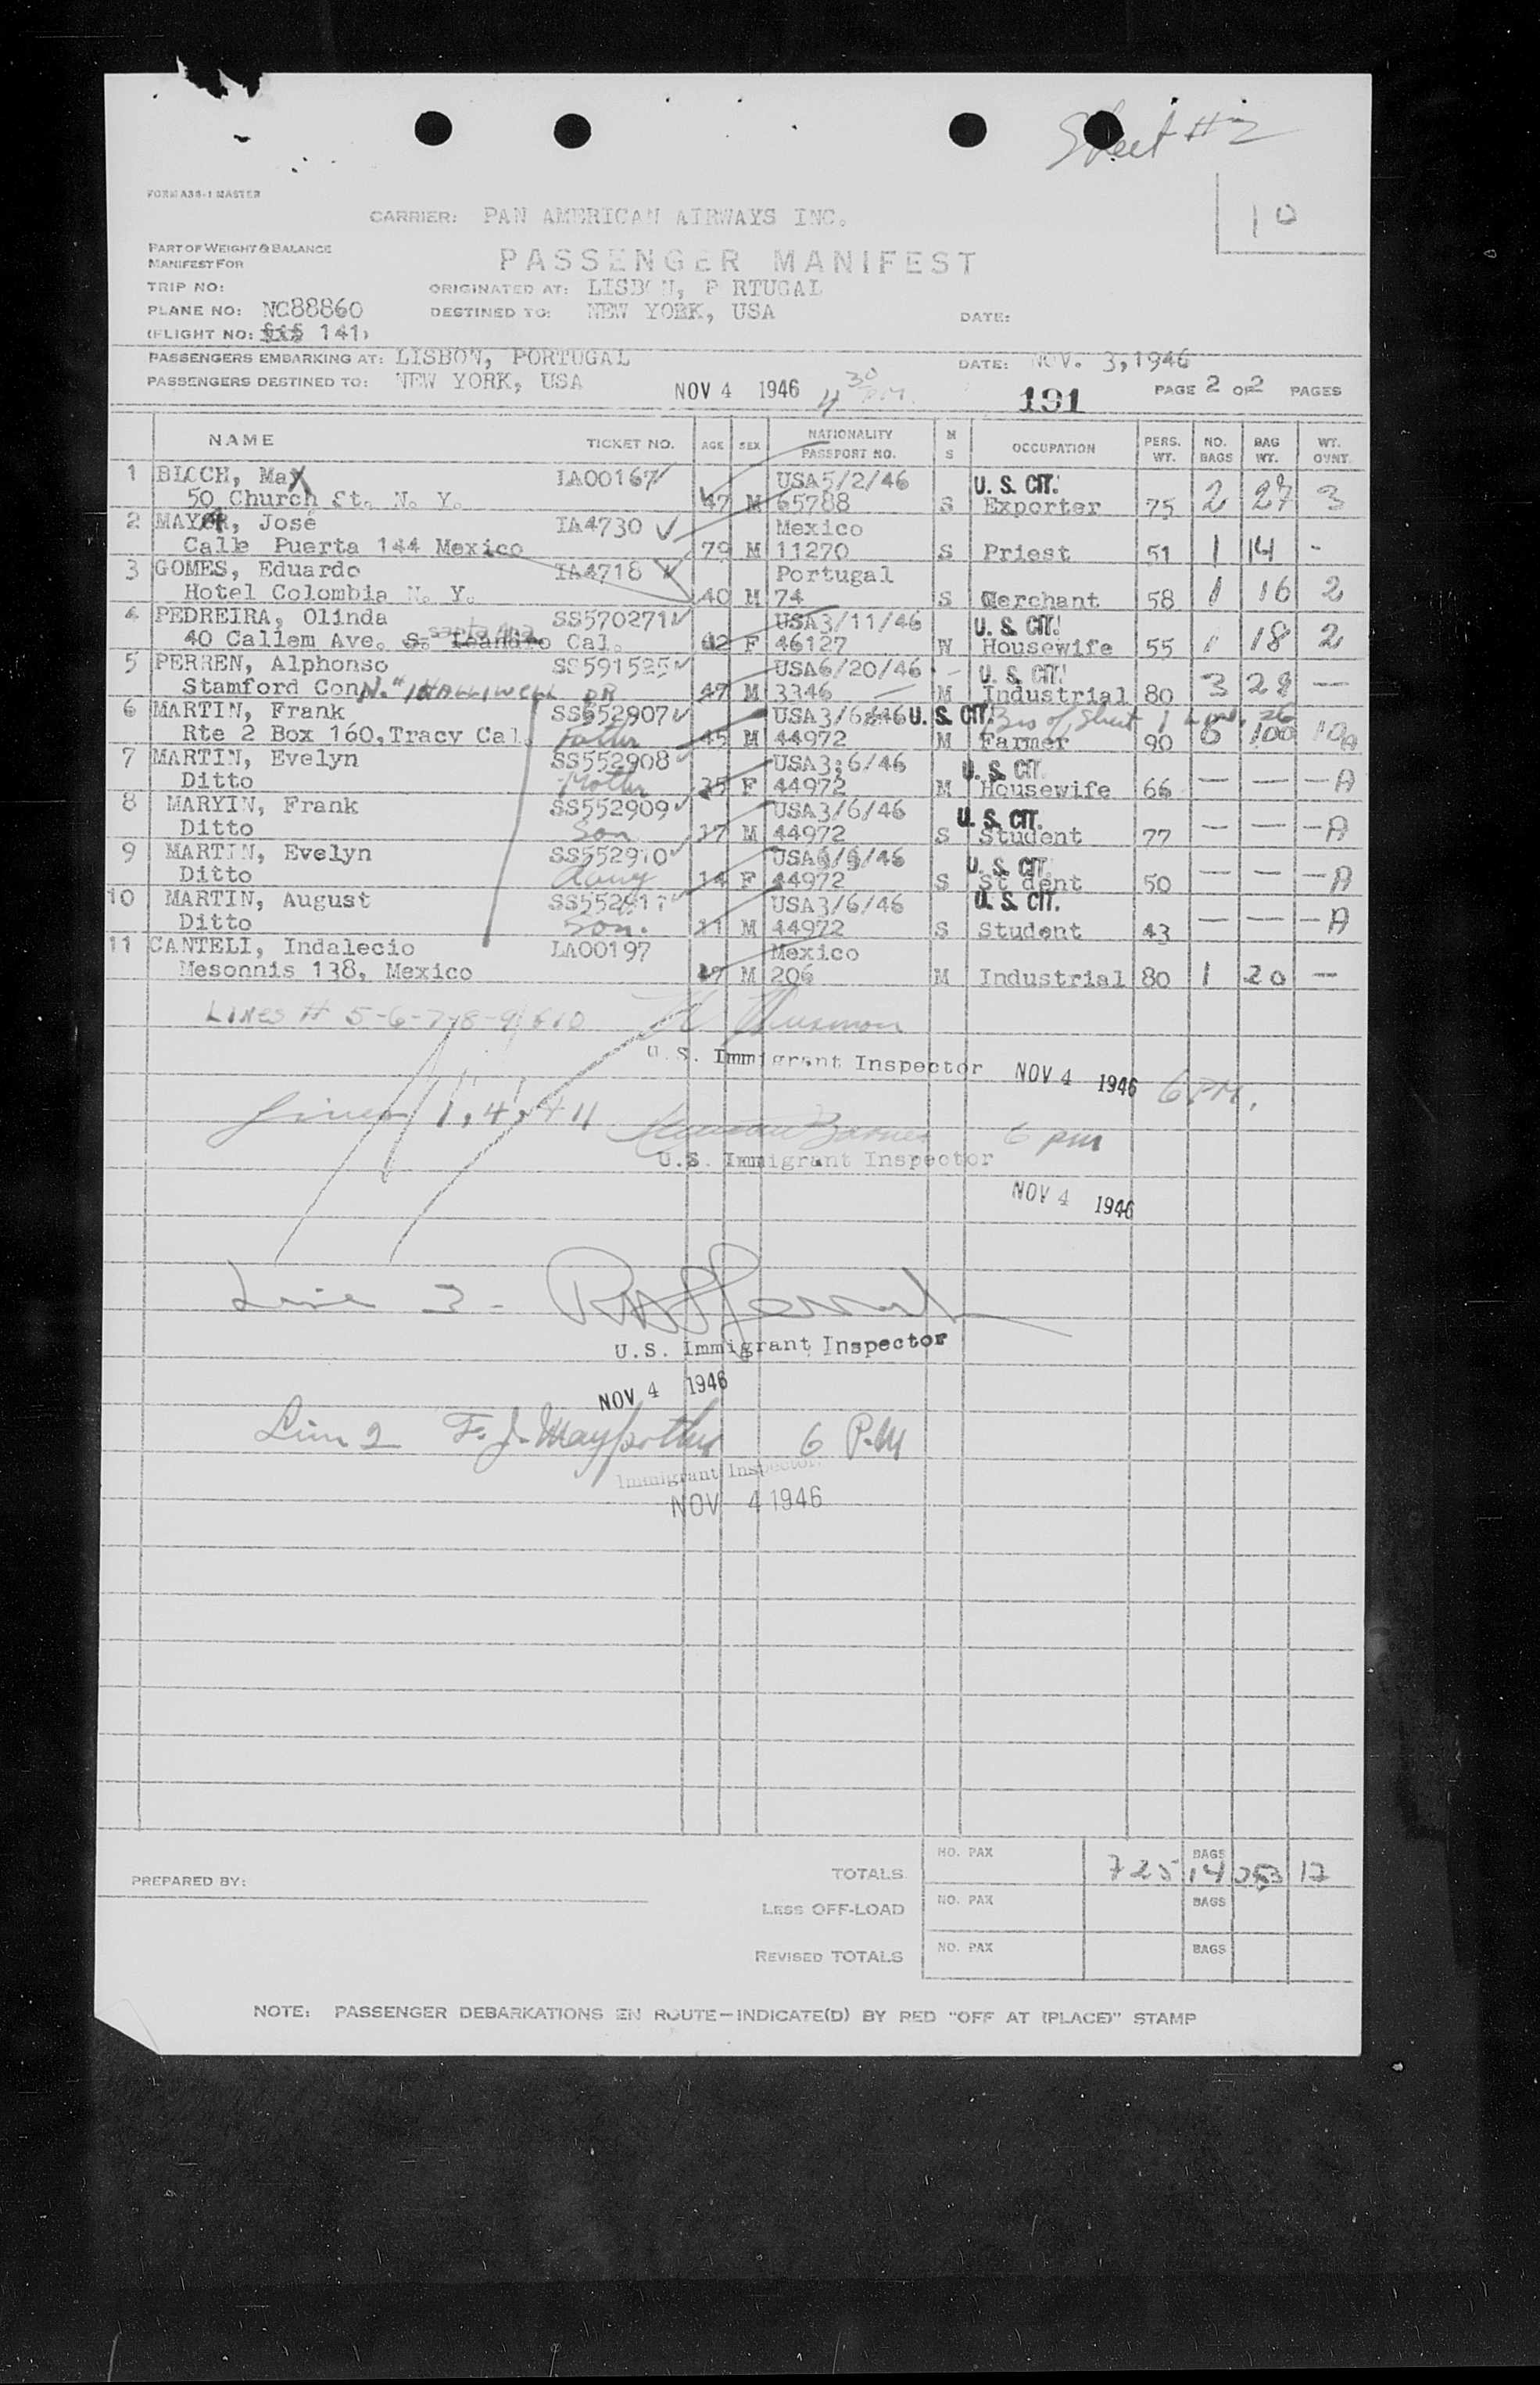 Sheet #2
FORM A38-1 MASTER
10
CARRIER: PAN AMERICAN AIRWAYS INC.
PART OF WEIGHT & BALANCE
MANIFEST FOR
PASSENGER MANIFEST
TRIP NO: ORIGINATED AT: LISBON, P RTUGAL
PLANE NO: NC88860 DESTINED TO: NEW YORK, USA DATE:
(FLIGHT NO: 141)
PASSENGERS EMBARKING AT: LISBON, PORTUGAL DATE: NOV. 3, 1946
PASSENGERS DESTINED TO: NEW YORK, USA NOV 4 1946 4 30 P.M. 191 PAGE 2 OF 2 PAGES
NAME TICKET NO. AGE SEX NATIONALITY PASSPORT NO. M S OCCUPATION PERS. WT. NO. BAGS BAG WT. WT. OVNT.
1 BLOCH, Max LA00167 USA5/2/46 U. S. CIT.
50 Church St. N. Y. 47 M 65788 S Exporter 75 2 27 3
2 MAYOR, José IA4730 Mexico
Calle Puerta 144 Mexico 79 M 11270 S Priest 51 1 14 -
3 GOMES, Eduardo IA4718 Portugal
Hotel Colombia N. Y. 40 M 74 S Merchant 58 1 16 2
4 PEDREIRA, Olinda SS570271 USA3/11/46 U. S. CIT.
40 Callem Ave. S. Leandro Cal. F 46127 W Housewife 55 1 18 2
5 PERREN, Alphonso SS591525 USA6/20/46 U. S. CIT.
Stamford Conn. HALLIWELL DR 47 M 3346 M Industrial 80 3 28 —
6 MARTIN, Frank SS552907 USA3/6/46 U. S. CIT.
Rte 2 Box 160, Tracy Cal. Father 45 M 44972 M Farmer 90 6 100 10A
7 MARTIN, Evelyn SS552908 USA3;6/46 U. S. CIT.
Ditto Mother 35 F 44972 M Housewife 66 — — — A
8 MARYIN, Frank SS552909 USA3/6/46 U. S. CIT.
Ditto Son 17 M 44972 S Student 77 — — — A
9 MARTIN, Evelyn SS552910 USA6/6/46 U. S. CIT.
Ditto 14 F 44972 S St dent 50 — — — A
10 MARTIN, August SS552911 USA3/6/46 U. S. CIT.
Ditto Son. 11 M 44972 S Student 43 — — — A
11 CANTELI, Indalecio LA00197 Mexico
Mesonnis 138, Mexico M 206 M Industrial 80 1 20 —
LINES # 5-6-7-8-9 & 10
U.S. Immigrant Inspector NOV 4 1946 6 PM.
Lines 1, 4, & 11 6 pm
U.S. Immigrant Inspector
NOV 4 1946
Line 3 -
U.S. Immigrant Inspector
NOV 4 1946
Line 2 F. J. 6 P.M
Immigrant Inspector
NOV 4 1946
TOTALS NO. PAX 725 BAGS 14 17
PREPARED BY:
LESS OFF-LOAD NO. PAX BAGS
REVISED TOTALS NO. PAX BAGS
NOTE: PASSENGER DEBARKATIONS EN ROUTE—INDICATE(D) BY RED "OFF AT (PLACE)" STAMP